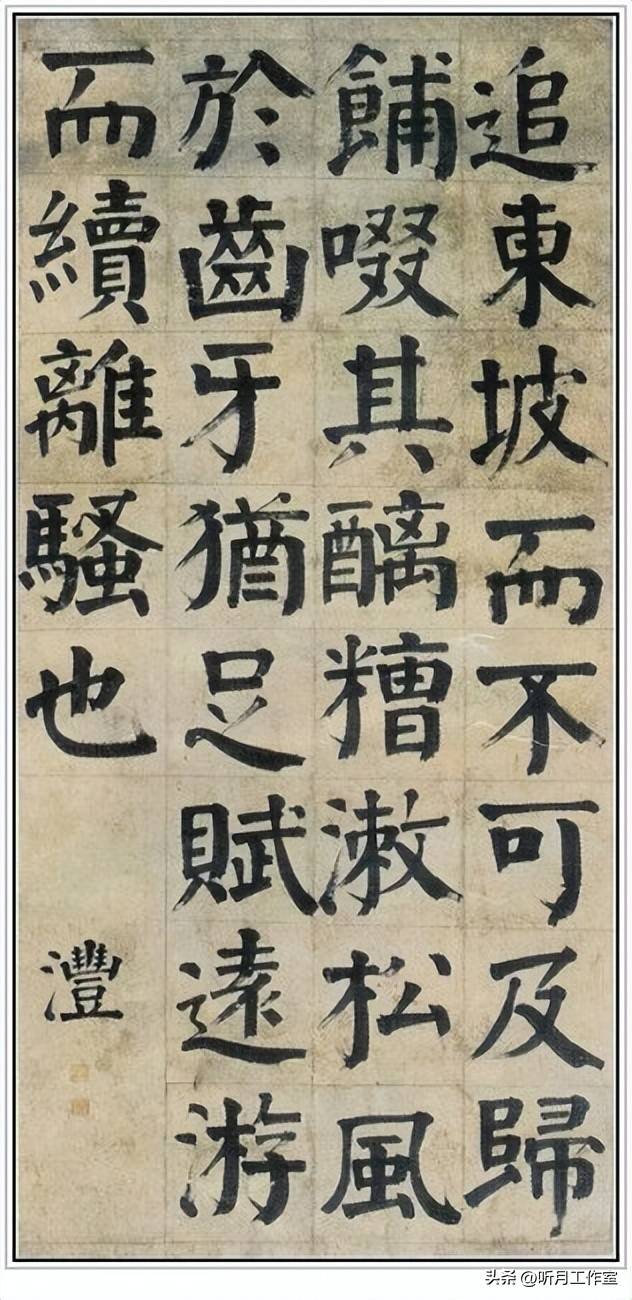 追東坡而不可及歸
餔啜其醨糟漱松風
於齒牙猶足賦遠游
而續離騷也
灃
头条 @听月工作室